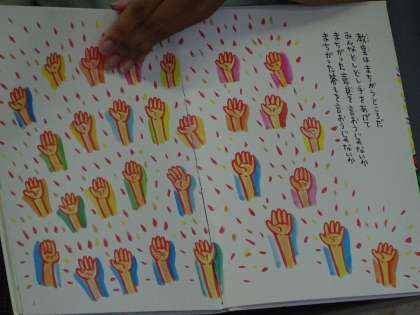 教室はまちがうところだ
みんなどしどし手をあげて
まちがった意見を言おうじゃないか
まちがった答えを言おうじゃないか